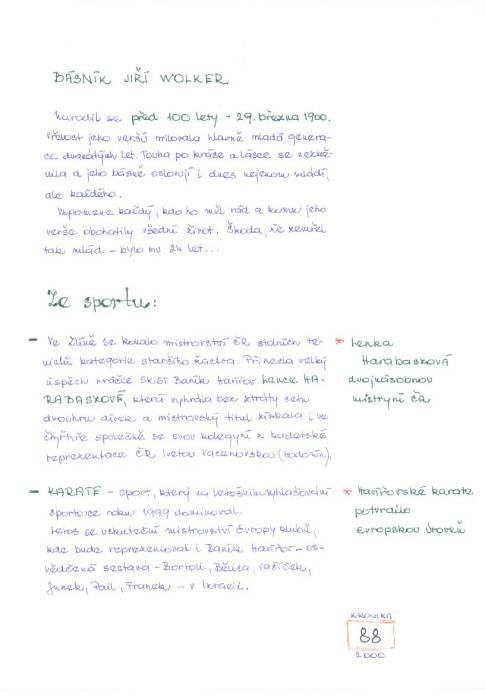 BÁSNÍK JIŘÍ WOLKER
Narodil se před 100 lety - 29. března 1900.
Vřelost jeho veršů milovala hlavně mladá genera-
ce dvacátých let. Touha po kráse a lásce se nezmě-
nila a jeho básně oslovují i dnes nejenom mládí,
ale každého.
Vzpomene každý, kdo ho měl rád a komu jeho
verše obohatily všední život. Škoda, že zemřel
tak mlád - bylo mu 24 let...
Ze sportu:
- Ve Zlíně se konalo mistrovství ČR stolních te-
nistů kategorie staršího žactva. Přineslo velký
úspěch hráčce SKST Baník Havířov Lence HA-
RABASZOVÉ, která vyhrála bez ztráty setu
dvouhru dívek a mistrovský titul získala i ve
čtyřhře společně se svou kolegyní z kadetské
reprezentace ČR Ivetou Vacenovskou (Hodonín).
* Lenka
Harabaszová
dvojnásobnou
mistryní ČR
- KARATE - sport, který na letošním vyhlašování
sportovce roku 1999 dominoval.
Letos se uskuteční mistrovství Evropy klubů,
kde bude reprezentovat i Baník Havířov - os-
vědčená sestava - Bortoli, Bělica, Vašíček,
Junek, Pail, Franek - v Izraeli.
* Havířovské karate
potvrdilo
evropskou úroveň
KRONIKA
88
2000